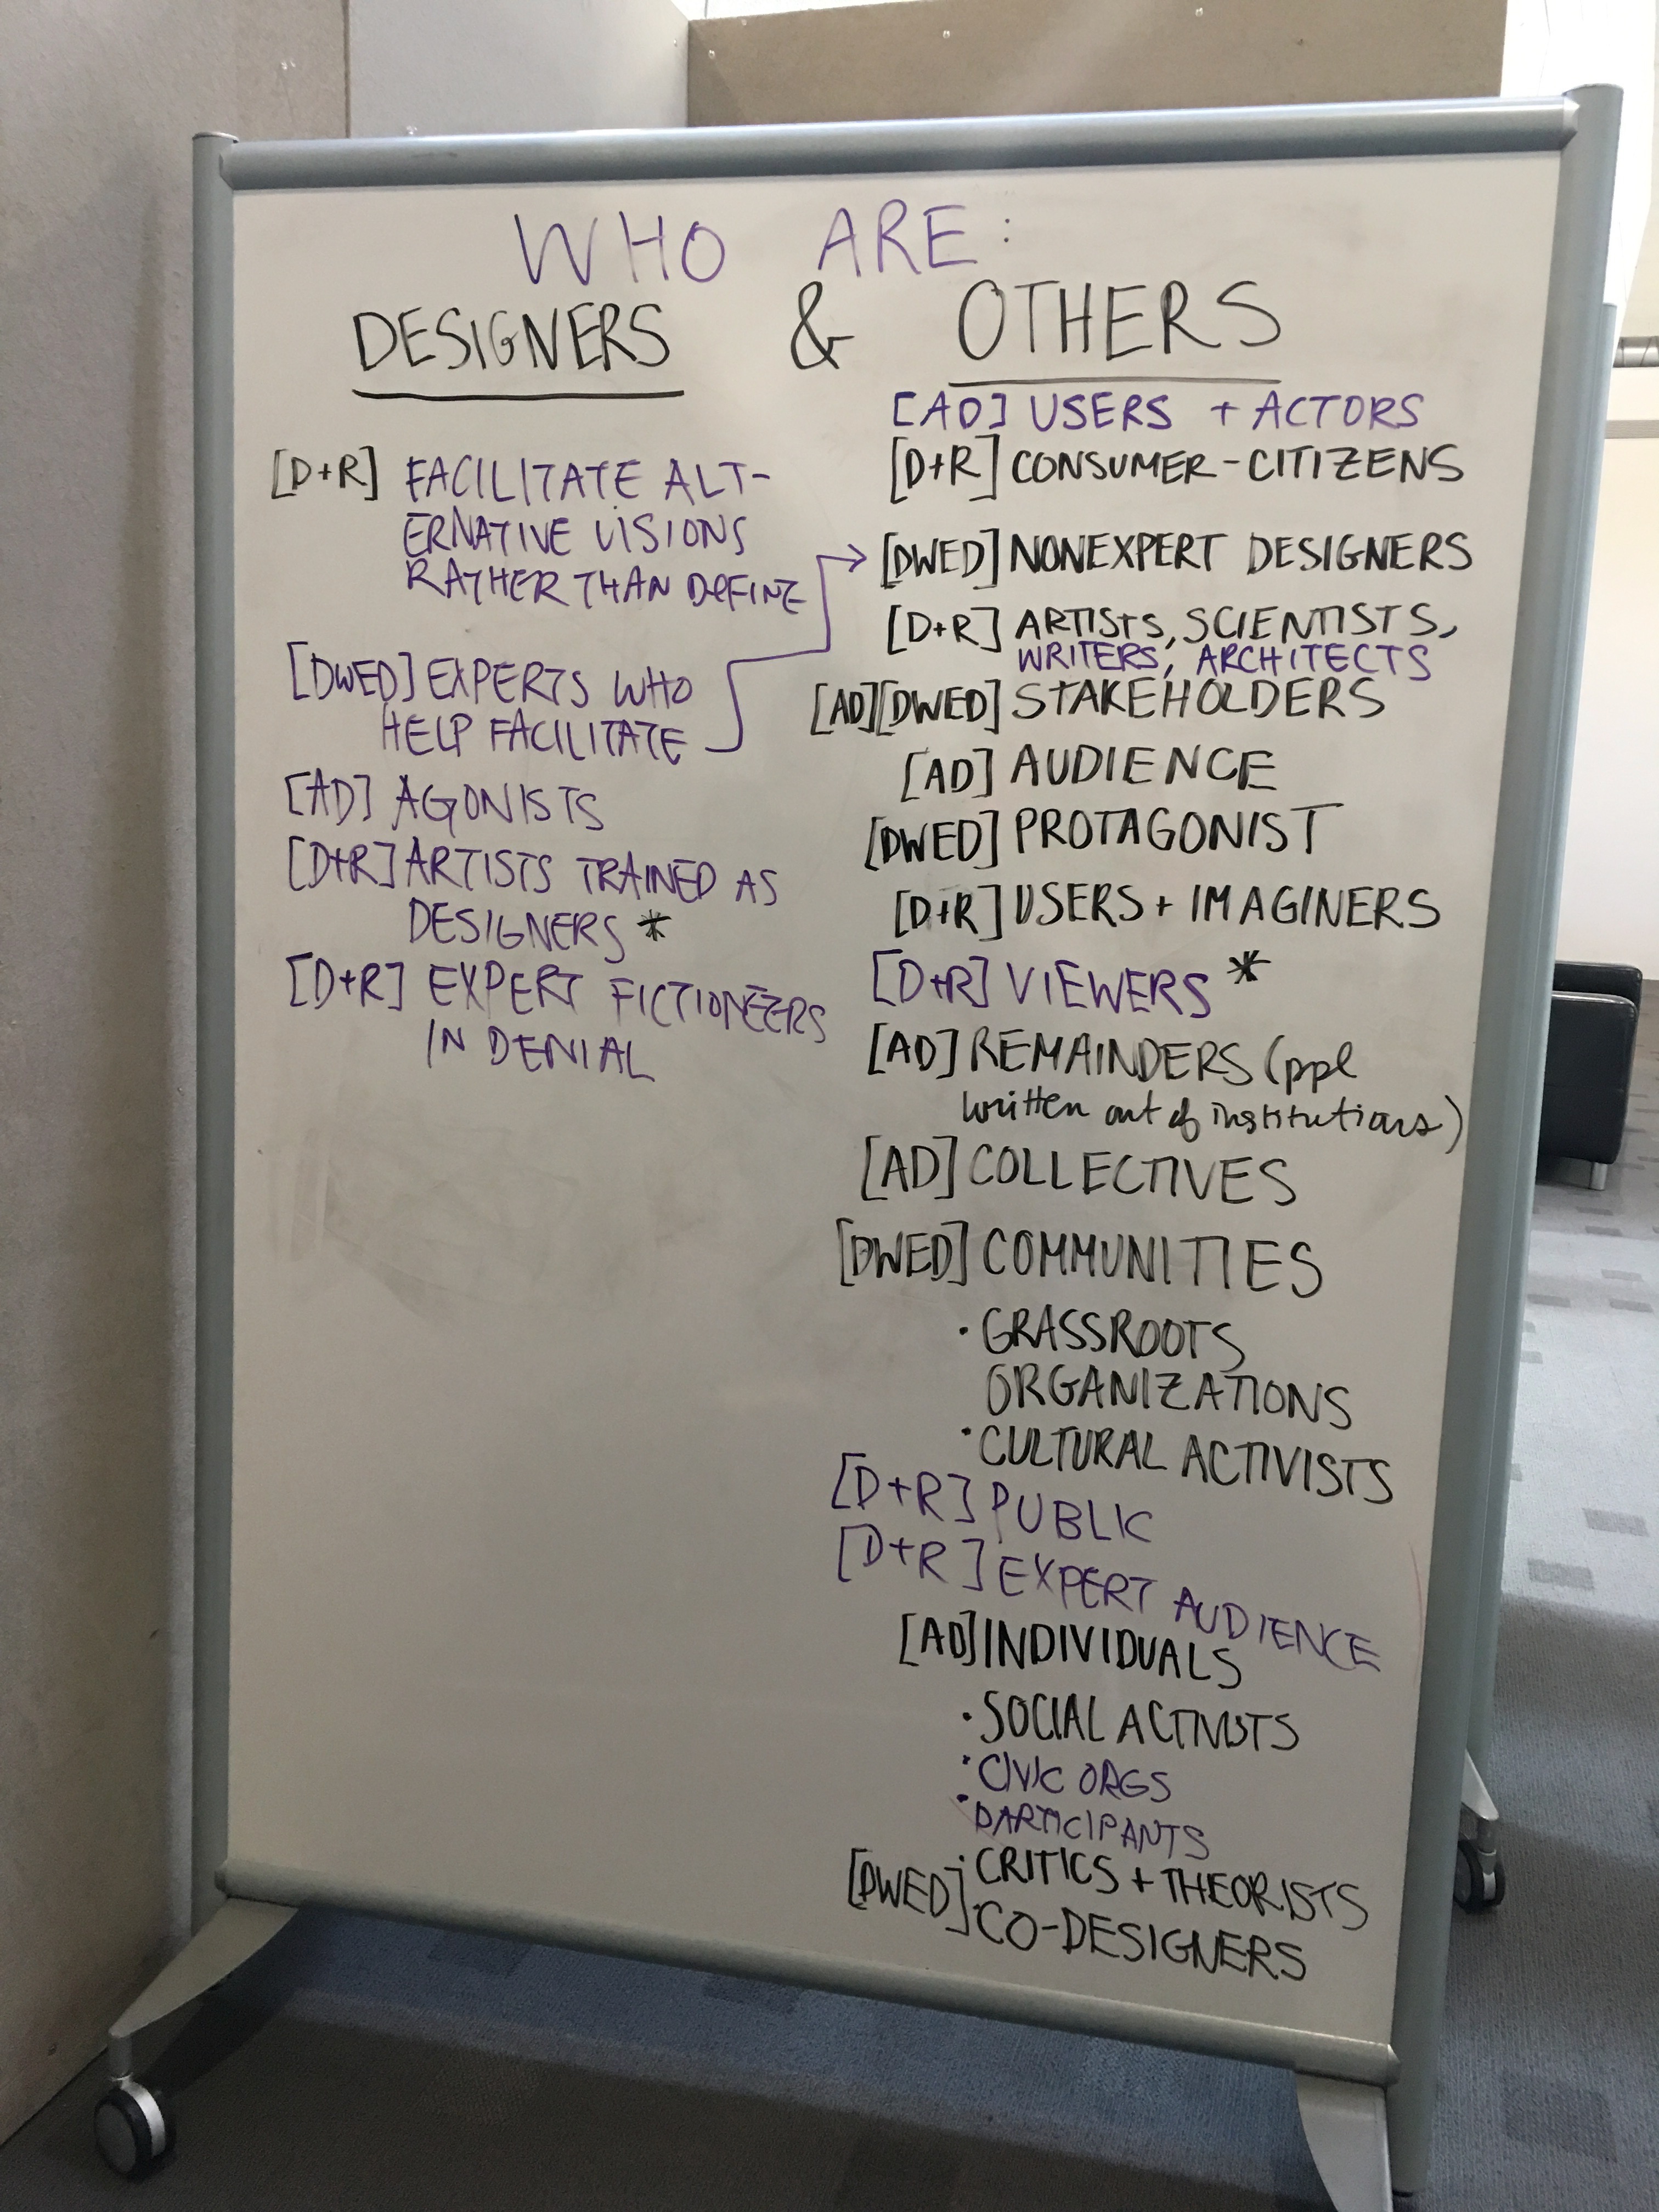 WHO ARE:
DESIGNERS & OTHERS
[D+R] FACILITATE ALT-
ERNATIVE VISIONS
RATHER THAN DEFINE
[DWED] EXPERTS WHO
HELP FACILITATE
[AD] AGONISTS
[D+R] ARTISTS TRAINED AS
DESIGNERS *
[D+R] EXPERT FICTIONEERS
IN DENIAL
[AD] USERS + ACTORS
[D+R] CONSUMER-CITIZENS
[DWED] NONEXPERT DESIGNERS
[D+R] ARTISTS, SCIENTISTS,
WRITERS, ARCHITECTS
[AD][DWED] STAKEHOLDERS
[AD] AUDIENCE
[DWED] PROTAGONIST
[D+R] USERS + IMAGINERS
[D+R] VIEWERS *
[AD] REMAINDERS (ppl
written out of institutions)
[AD] COLLECTIVES
[DWED] COMMUNITIES
• GRASSROOTS
ORGANIZATIONS
• CULTURAL ACTIVISTS
[D+R] PUBLIC
[D+R] EXPERT AUDIENCE
[AD] INDIVIDUALS
• SOCIAL ACTIVISTS
• CIVIC ORGS
• PARTICIPANTS
[DWED] • CRITICS + THEORISTS
• CO-DESIGNERS